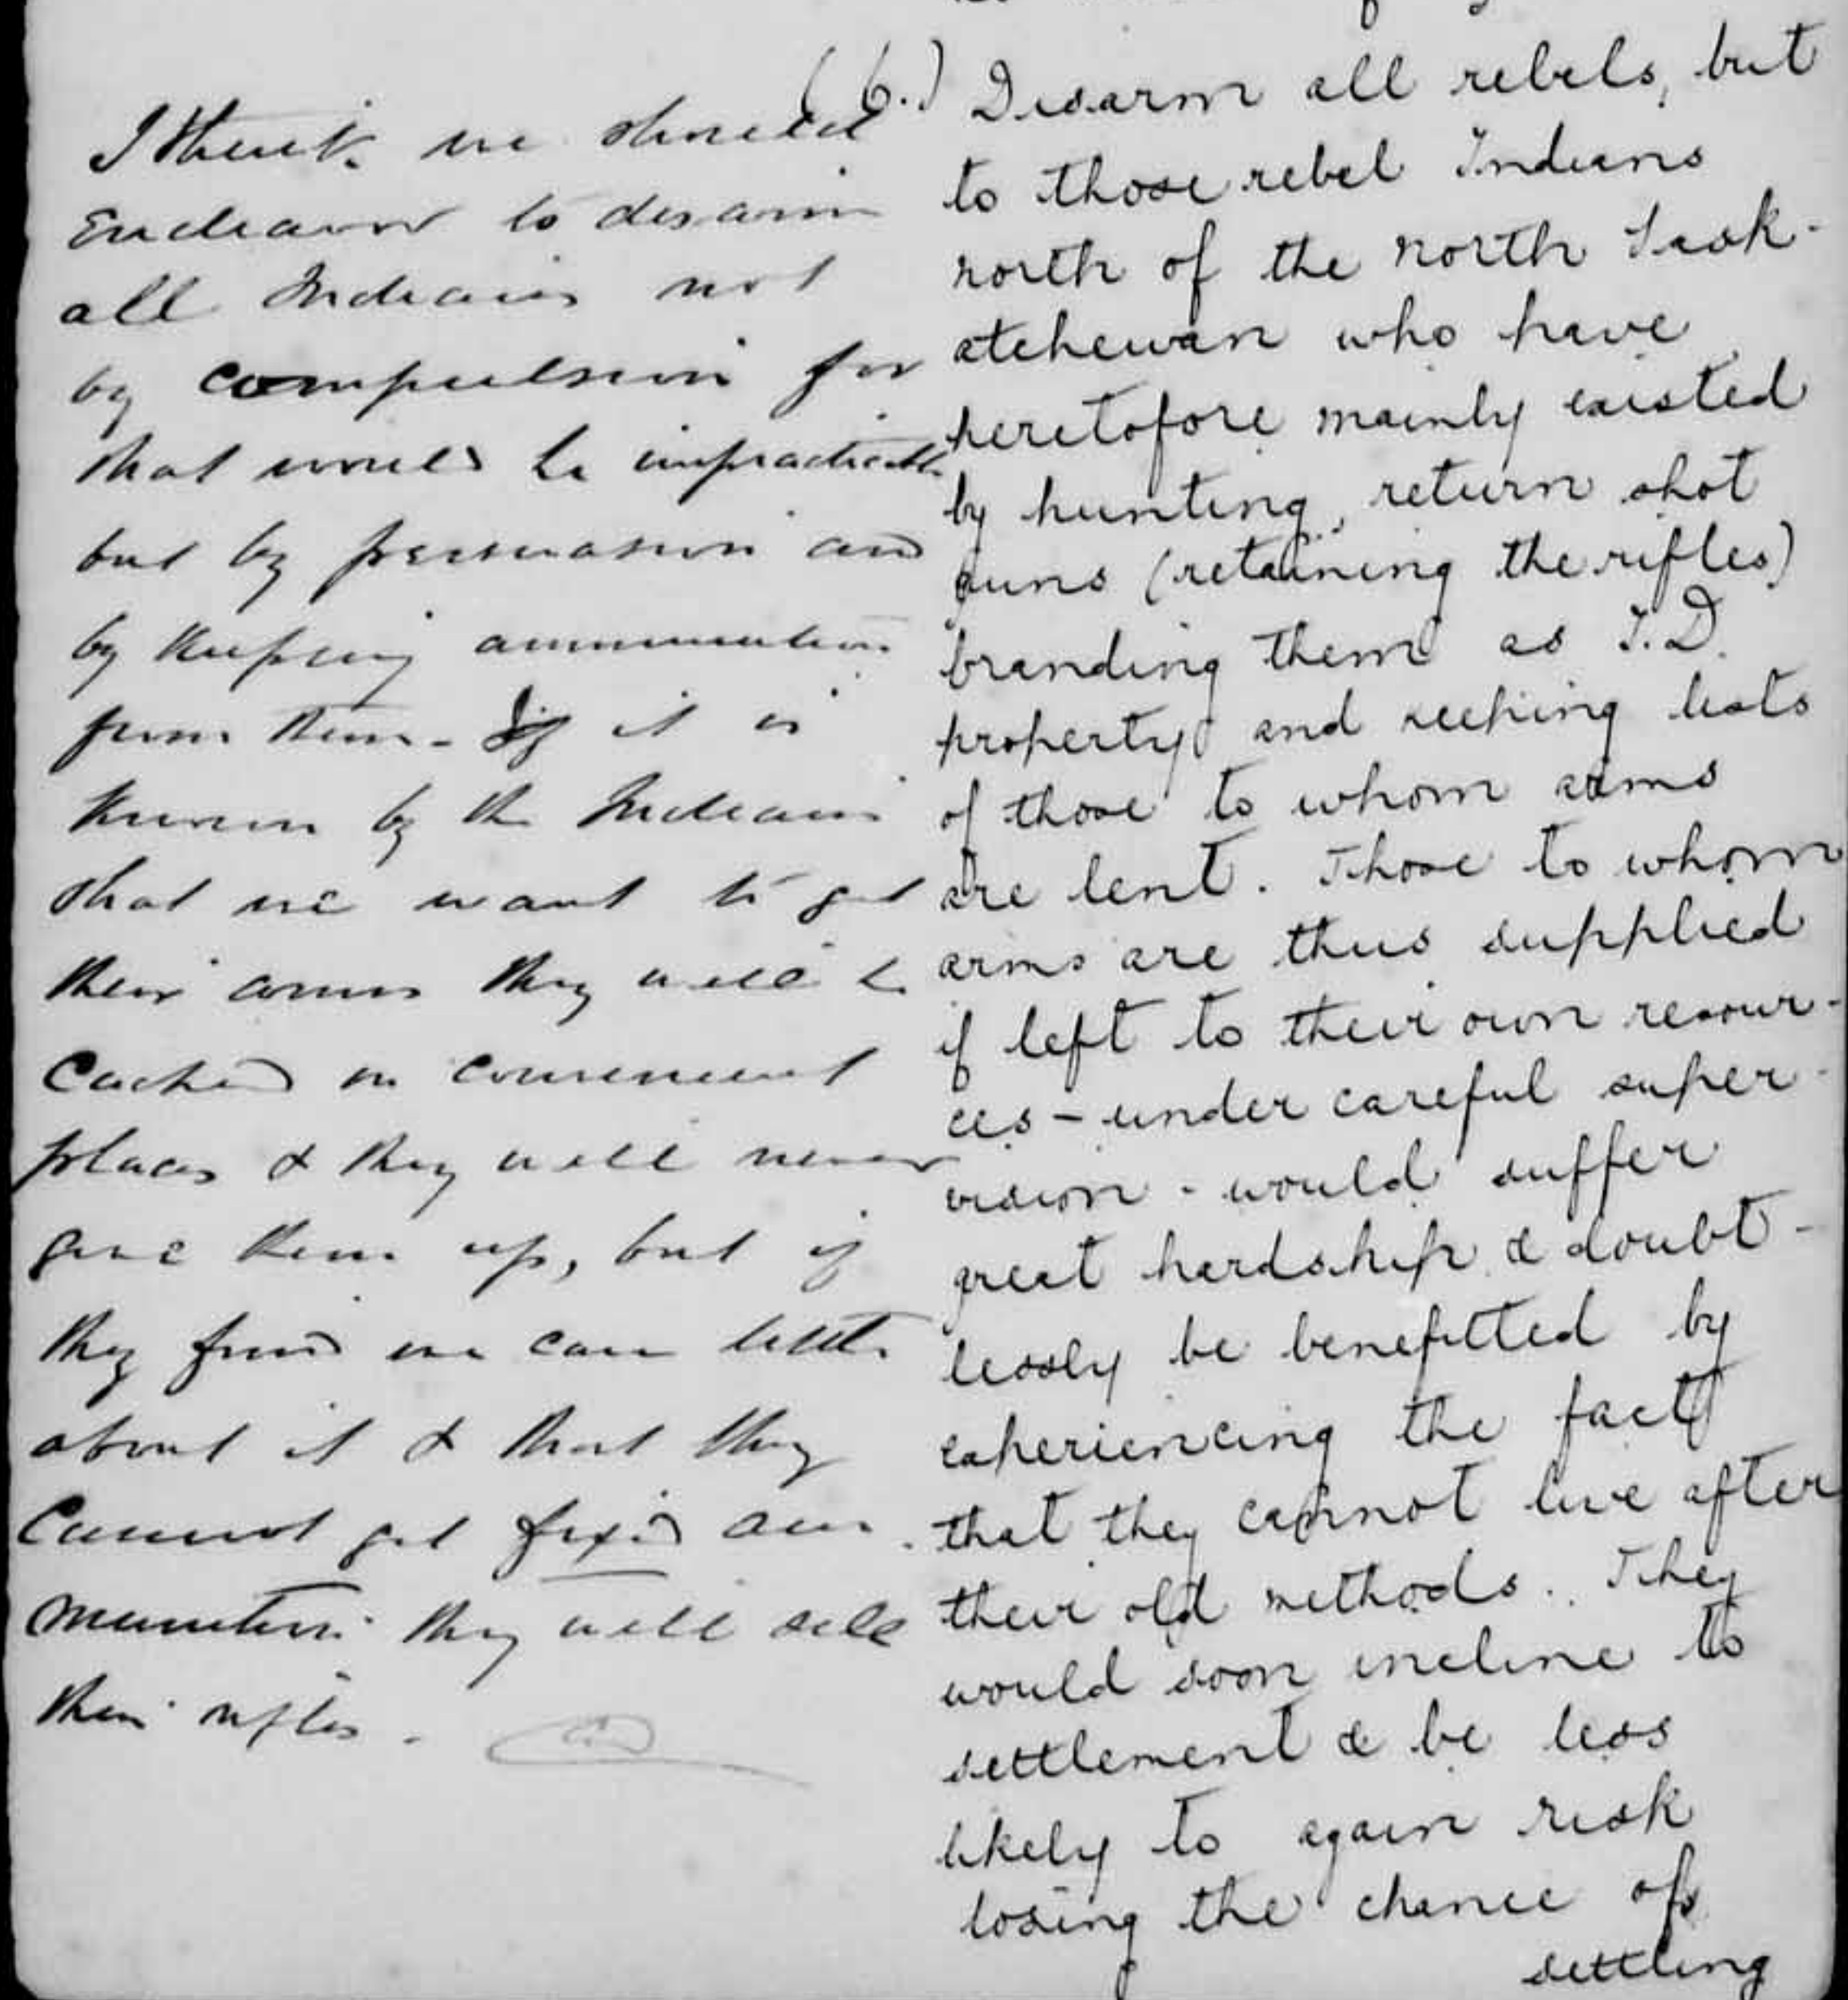 I think we should
Endeavor to disarm
all Indians not
by compulsion for
that would be impracticable
but by persuasion and
by keeping ammunition
from them - If it is
known by the Indians
that we want to get
their arms they will be
Cached in convenient
places & they will never
give them up, but if
they find we care little
about it & that they
Cannot get fixed am
munition they will sell
their rifles.
(6.) Disarm all rebels, but
to those rebel Indians
north of the north Sask-
atchewan who have
heretofore mainly existed
by hunting, return shot
guns (retaining the rifles)
branding them as I.D.
property and keeping lists
of those to whom arms
are lent. Those to whom
arms are thus supplied
if left to their own resour-
ces - under careful super-
vision - would suffer
great hardship & doubt-
lessly be benefitted by
experiencing the fact
that they cannot live after
their old methods. They
would soon incline to
settlement & be less
likely to again risk
losing the chance of
settling